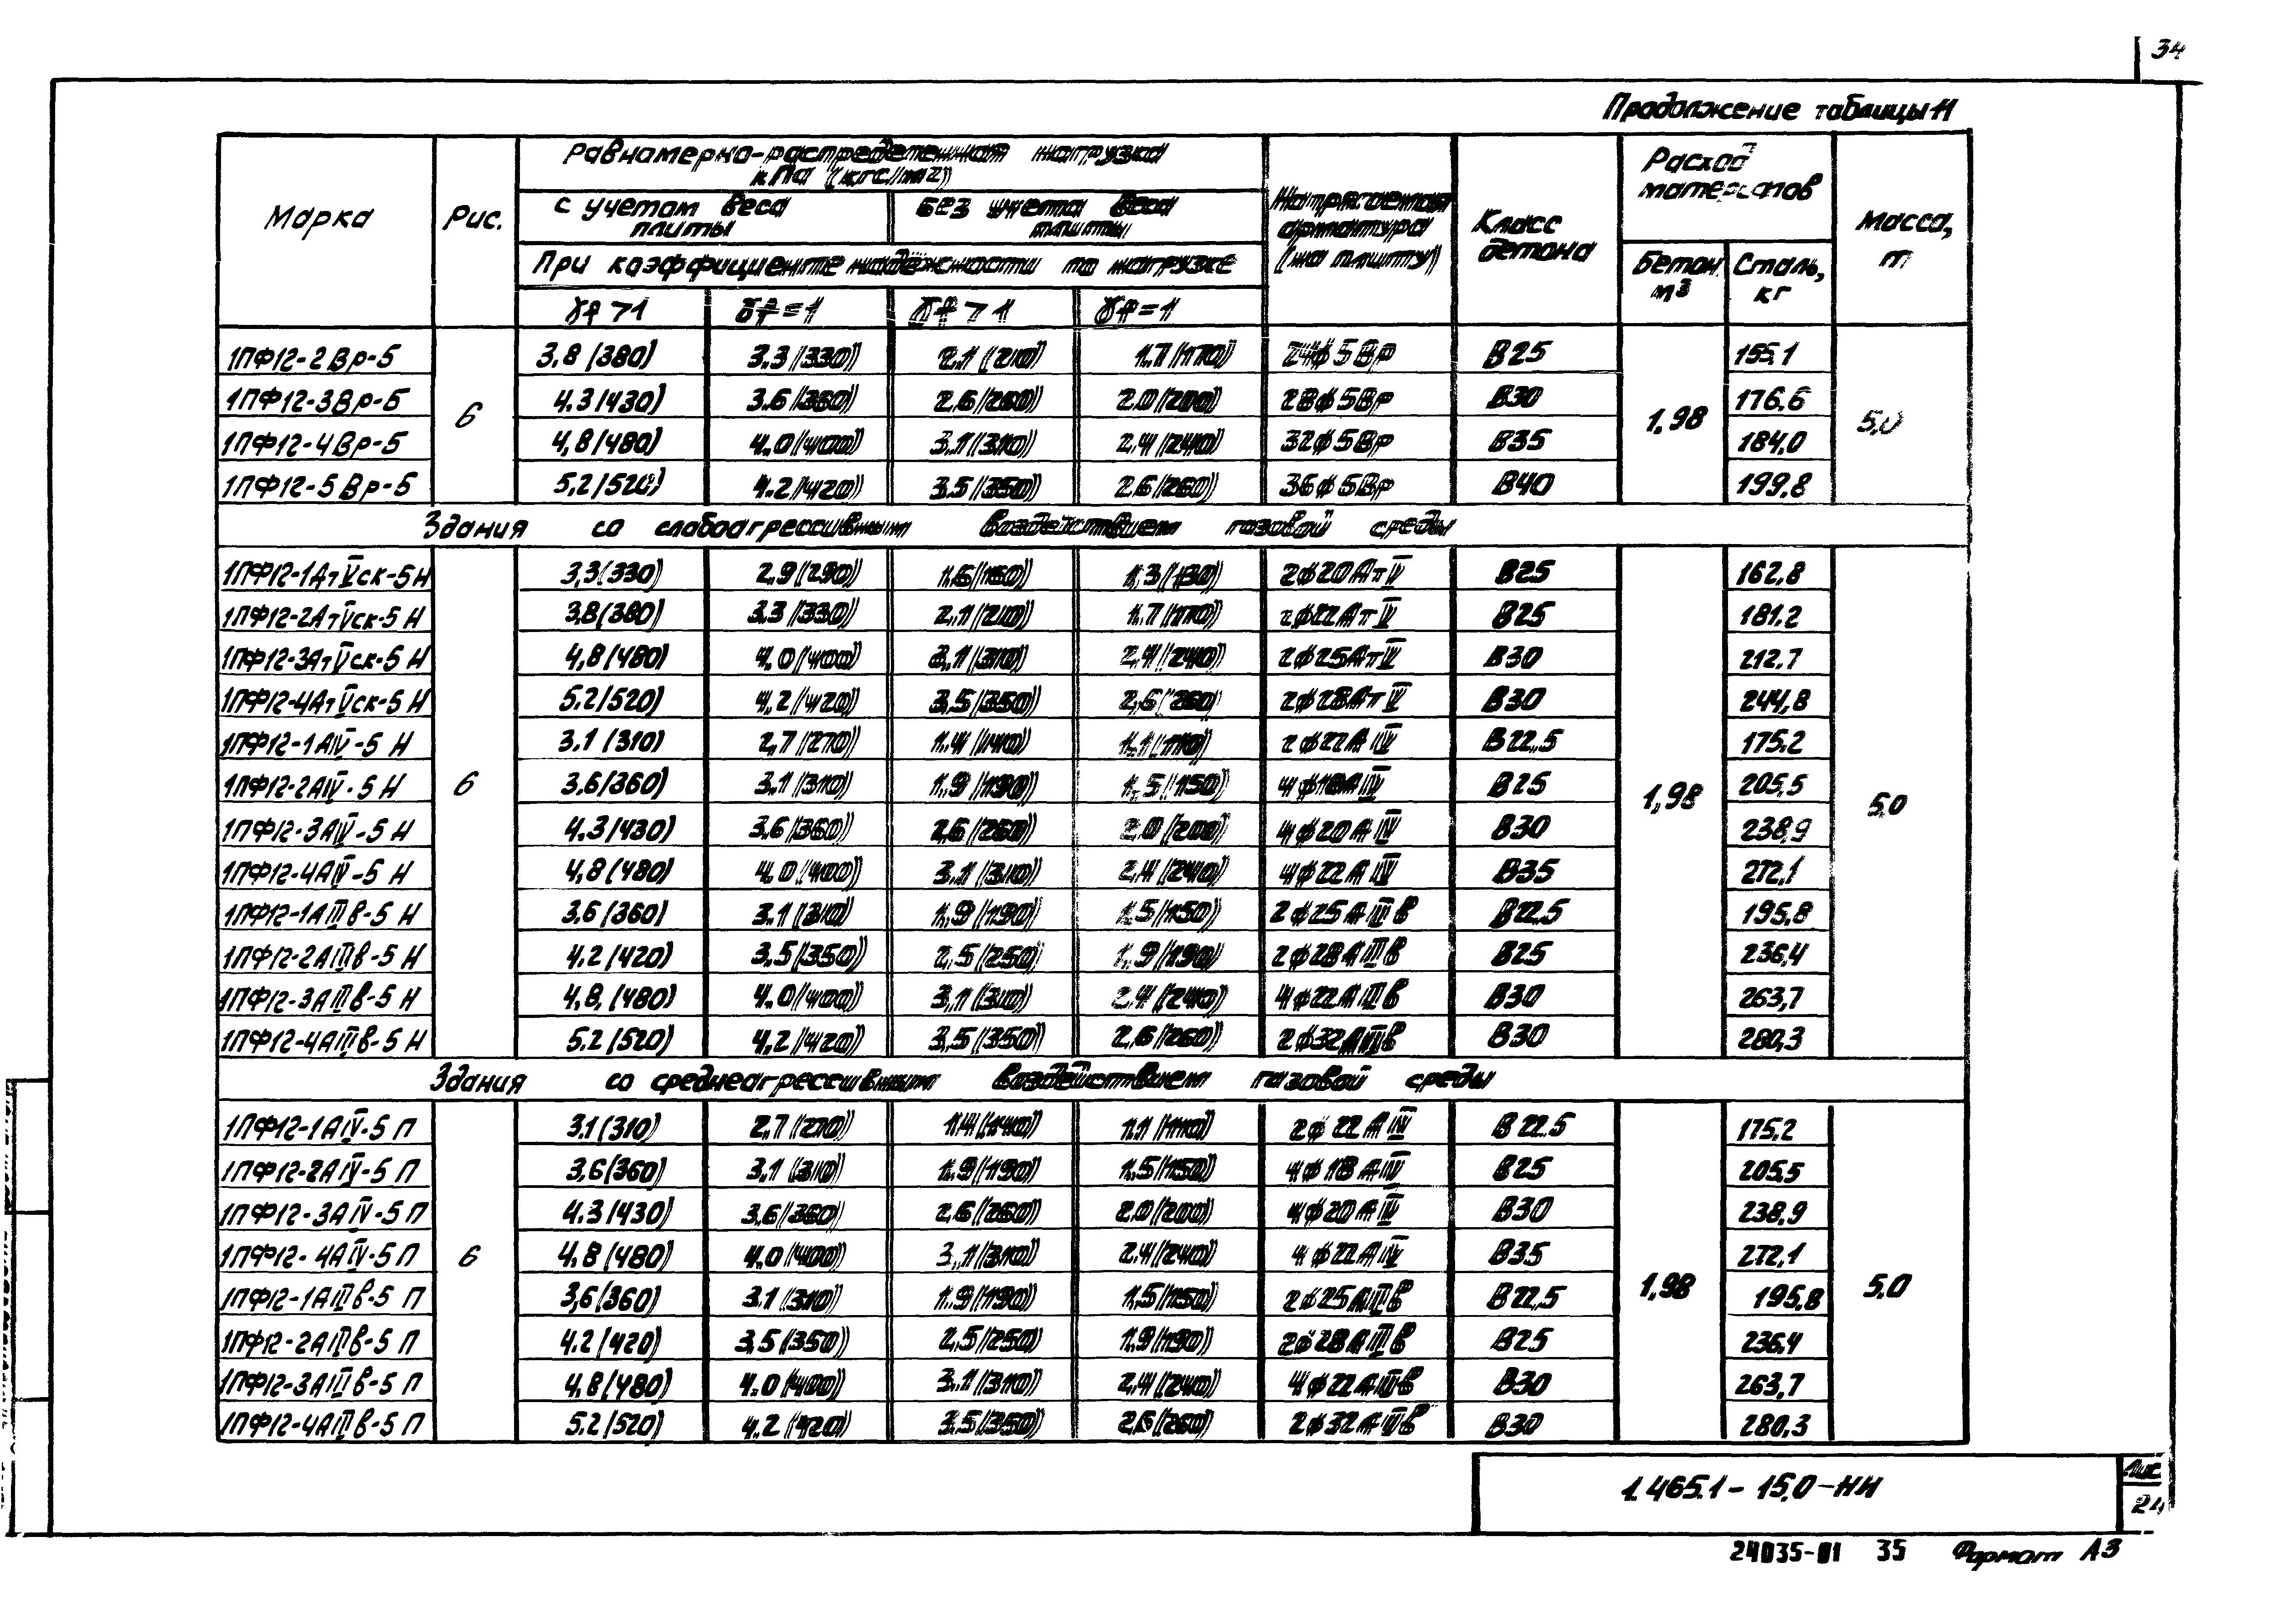 34
Продолжение таблицы 11
Марка
Рис.
Равномерно-распределенная нагрузка
кПа (кгс/м2)
с учетом веса
плиты
без учета веса
плиты
При коэффициенте надежности по нагрузке
γf >1
γf =1
γf >1
γf =1
Напрягаемая
арматура
(на плиту)
Класс
бетона
Расход
материалов
Бетон, м3
Сталь, кг
Масса, т
1ПФ12-2Вр-5 6 3,8 (380) 3.3 (330) 2.1 (210) 1.7 (170) 24ф5Вр В25 1,98 155.1 5,0
1ПФ12-3Вр-5 4.3 (430) 3.6 (360) 2.6 (260) 2.0 (200) 28ф5Вр В30 176,6
1ПФ12-4Вр-5 4,8 (480) 4.0 (400) 3.1 (310) 2.4 (240) 32ф5Вр В35 184,0
1ПФ12-5Вр-5 5,2 (520) 4.2 (420) 3.5 (350) 2.6 (260) 36ф5Вр В40 199,8
Здания со слабоагрессивным воздействием газовой среды
1ПФ12-1АтVск-5Н 6 3,3 (330) 2,9 (290) 1.6 (160) 1.3 (130) 2ф20АтV В25 1,98 162,8 5,0
1ПФ12-2АтVск-5Н 3,8 (380) 3.3 (330) 2.1 (210) 1.7 (170) 2ф22АтV В25 181.2
1ПФ12-3АтVск-5Н 4,8 (480) 4.0 (400) 3,1 (310) 2.4 (240) 2ф25АтV В30 212.7
1ПФ12-4АтVск-5Н 5.2 (520) 4.2 (420) 3,5 (350) 2,6 (260) 2ф28АтV В30 244,8
1ПФ12-1АIV-5Н 3.1 (310) 2,7 (270) 1.4 (140) 1.1 (110) 2ф22АIV В22.5 175.2
1ПФ12-2АIV-5Н 3.6 (360) 3.1 (310) 1.9 (190) 1.5 (150) 4ф18АIV В25 205,5
1ПФ12-3АIV-5Н 4.3 (430) 3.6 (360) 2,6 (260) 2.0 (200) 4ф20АIV В30 238,9
1ПФ12-4АIV-5Н 4,8 (480) 4.0 (400) 3.1 (310) 2,4 (240) 4ф22АIV В35 272,1
1ПФ12-1АIIIв-5Н 3.6 (360) 3.1 (310) 1,9 (190) 1.5 (150) 2ф25АIIIв В22.5 195,8
1ПФ12-2АIIIв-5Н 4.2 (420) 3.5 (350) 2,5 (250) 1.9 (190) 2ф28АIIIв В25 236,4
1ПФ12-3АIIIв-5Н 4,8 (480) 4.0 (400) 3,1 (310) 2.4 (240) 4ф22АIIIв В30 263,7
1ПФ12-4АIIIв-5Н 5.2 (520) 4,2 (420) 3,5 (350) 2,6 (260) 2ф32АIIIв В30 280,3
Здания со среднеагрессивным воздействием газовой среды
1ПФ12-1АIV-5П 6 3.1 (310) 2,7 (270) 1.4 (140) 1.1 (110) 2ф22АIV В22.5 1,98 175.2 5,0
1ПФ12-2АIV-5П 3,6 (360) 3.1 (310) 1.9 (190) 1.5 (150) 4ф18АIV В25 205,5
1ПФ12-3АIV-5П 4.3 (430) 3.6 (360) 2.6 (260) 2.0 (200) 4ф20АIV В30 238,9
1ПФ12-4АIV-5П 4,8 (480) 4.0 (400) 3,1 (310) 2.4 (240) 4ф22АIV В35 272,1
1ПФ12-1АIIIв-5П 3,6 (360) 3.1 (310) 1.9 (190) 1,5 (150) 2ф25АIIIв В22,5 195,8
1ПФ12-2АIIIв-5П 4.2 (420) 3,5 (350) 2,5 (250) 1,9 (190) 2ф28АIIIв В25 236,4
1ПФ12-3АIIIв-5П 4,8 (480) 4.0 (400) 3.1 (310) 2,4 (240) 4ф22АIIIв В30 263,7
1ПФ12-4АIIIв-5П 5.2 (520) 4.2 (420) 3.5 (350) 2.6 (260) 2ф32АIIIв В30 280,3
1.465.1-15.0-НИ
Лис
24
24035-01 35 Формат А3